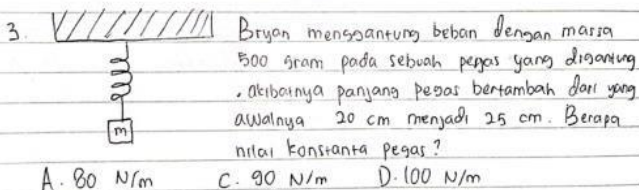 3. Bryan menggantung beban dengan massa
500 gram pada sebuah pegas yang digantung
. akibatnya panjang pegas bertambah dari yang
awalnya 20 cm menjadi 25 cm. Berapa
nilai konstanta pegas?
m
A. 80 N/m C. 90 N/m D. 100 N/m